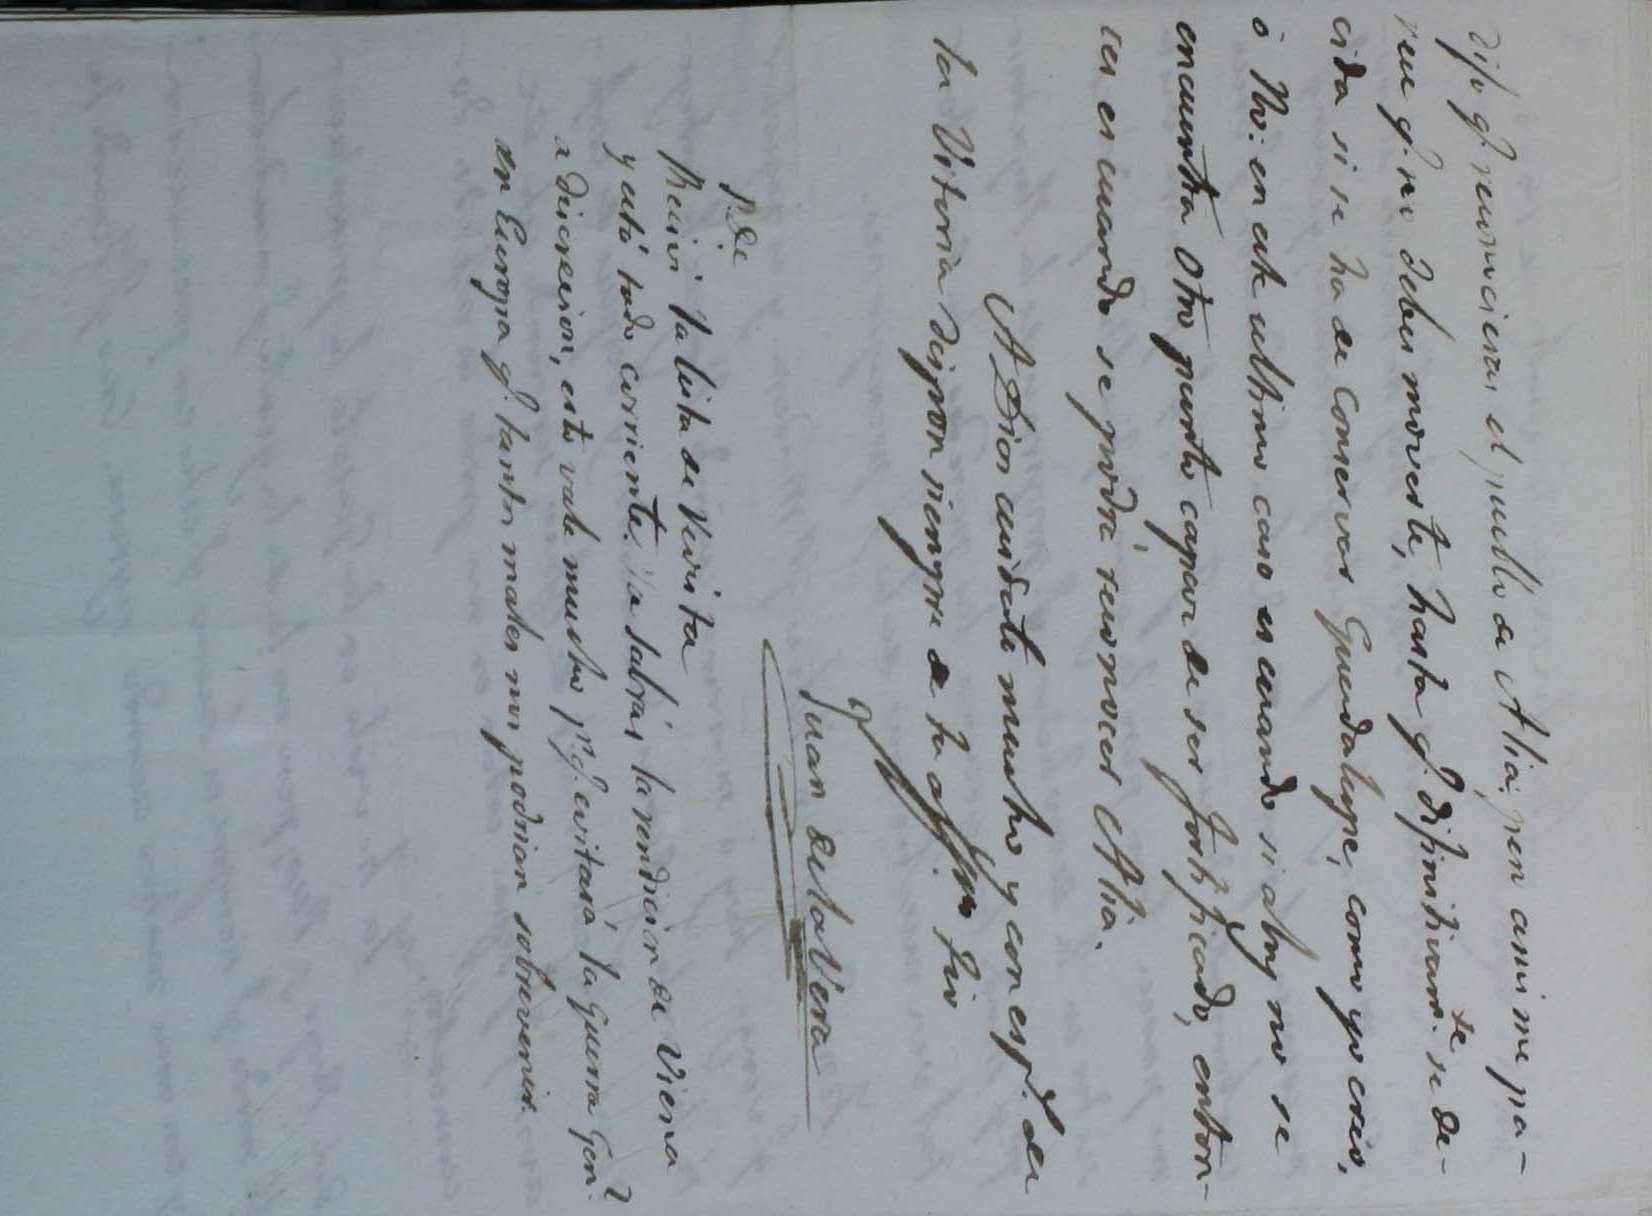 dijo q.e reconocieras el pueblo de Alia; pero asi me pa-
rece q.e no debes moverte, hasta q.e difinitivam.te se de-
cida si se ha de conservar Guadalupe, como yo creo,
ó No: en este ultimo caso es cuando si alog no se
encuentra otro punto capaz de ser fortificado, enton-
ces es cuando se podrá reconocer Alia.
A Dios cuidate mucho y con esp.d de
la Vitoria dispon siempre de tu aff.mo tio
Juan de la Vera
P.D.
Recivi la lista de revista
y está todo corriente. Ya sabrás la rendicion de Viena
a discrecion, esto vale mucho p.r q.e evitará la guerra Gen.l
en Europa q.e tantos males nos podrian sobrevenir.